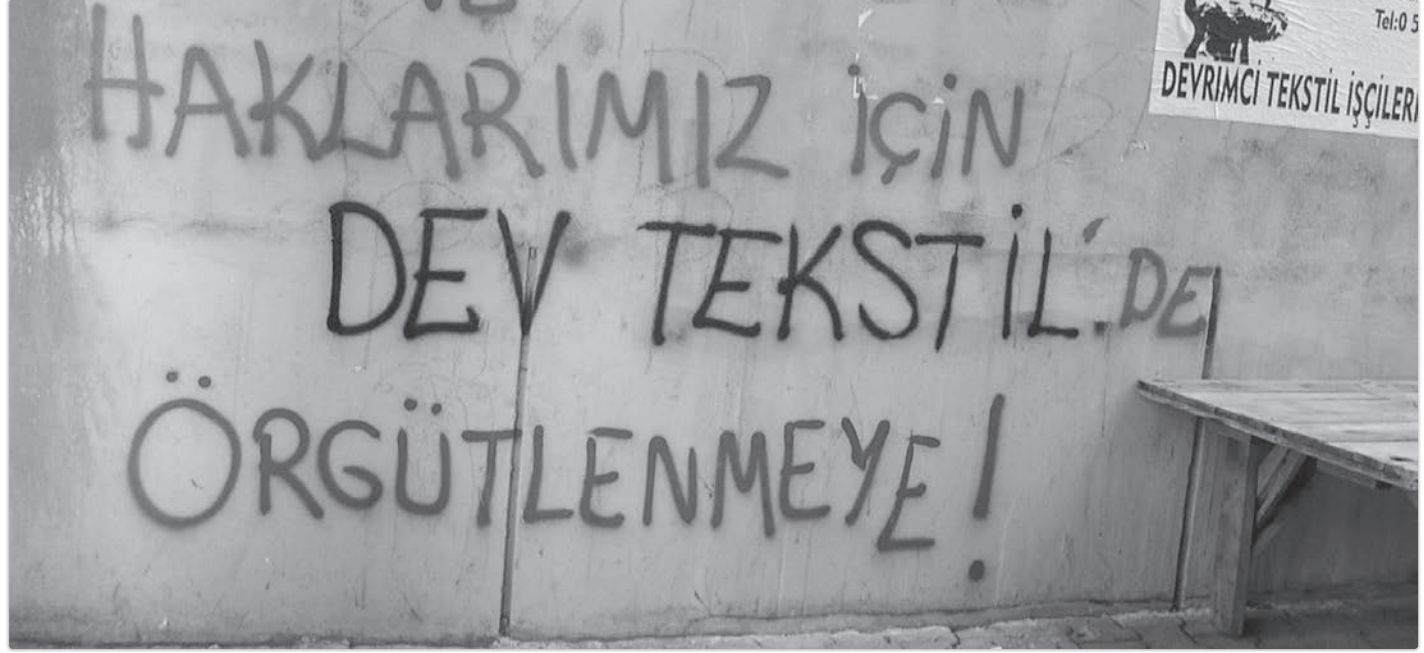 HAKLARIMIZ İÇİN
DEV TEKSTİL'DE
ÖRGÜTLENMEYE!
Tel:0 5
DEVRİMCİ TEKSTİL İŞÇİLERİ